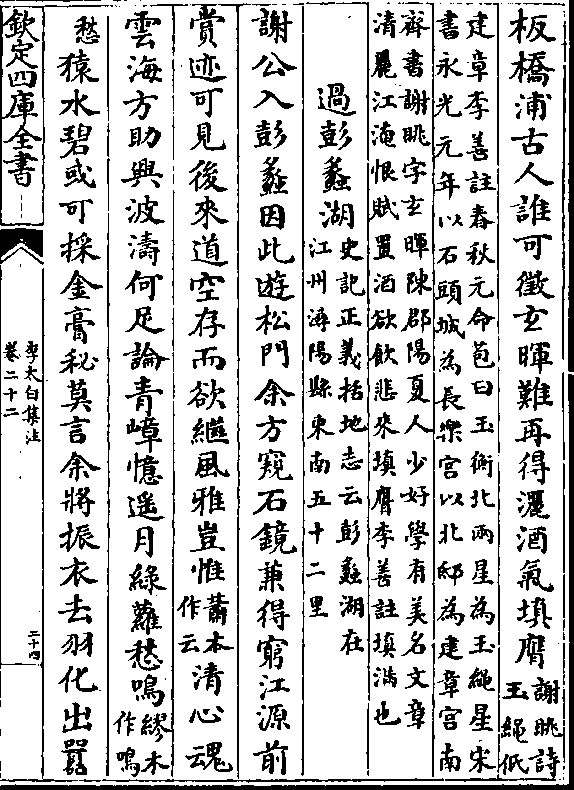 板橋浦古人誰可徵玄暉難再得灑酒氣填膺
謝朓詩
玉繩低
建章李善註春秋元命苞曰玉衡北兩星為玉繩星宋
書永光元年以石頭城為長樂宮以北邸為建章宮南
齊書謝朓字玄暉陳郡陽夏人少好學有美名文章
清麗江淹恨賦置酒欲飲悲來填膺李善註填滿也
過彭蠡湖
史記正義括地志云彭蠡湖在
江州潯陽縣東南五十二里
謝公入彭蠡因此遊松門余方窺石鏡兼得窮江源前
賞迹可見後來道空存而欲繼風雅豈惟
蕭本
作云
清心魂
雲海方助興波濤何足論青嶂憶遥月綠蘿愁鳴
繆本
作鳴
愁
猿水碧或可採金膏秘莫言余將振衣去羽化出囂
欽定四庫全書
李太白集注
卷二十二
二十四